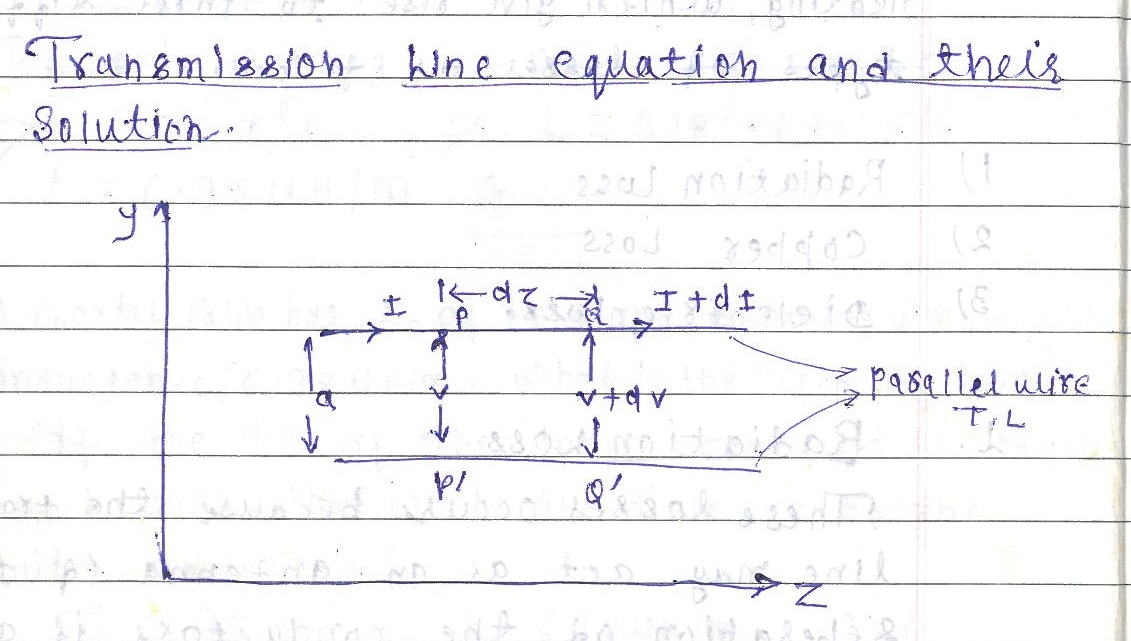 Transmission Line equation and their
Solution.
y
I ←dz→ I + dI
P Q
a V V + dV parallel wire
T.L
P' Q'
Z